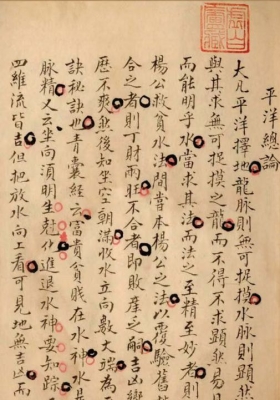 平洋總論
大凡平洋擇地龍脉則無可捉摸水脉則顯然易見
與其求無可捉摸之龍而不得不求顯然易見
而能明乎水當求其法而法之至精至妙者則
楊公救貧水法間嘗本楊公之法以覆驗舊
合之者則丁財兩旺不合者即敗產乏嗣吉凶
歷不爽然後知坐空朝滿收水立向數大端為
訣秘訣也青囊經云富貴貧賤在水神水是
脉精又云坐向須明生尅化進退水神要知踪
四維流皆吉但把放水向上看可見地無吉凶而